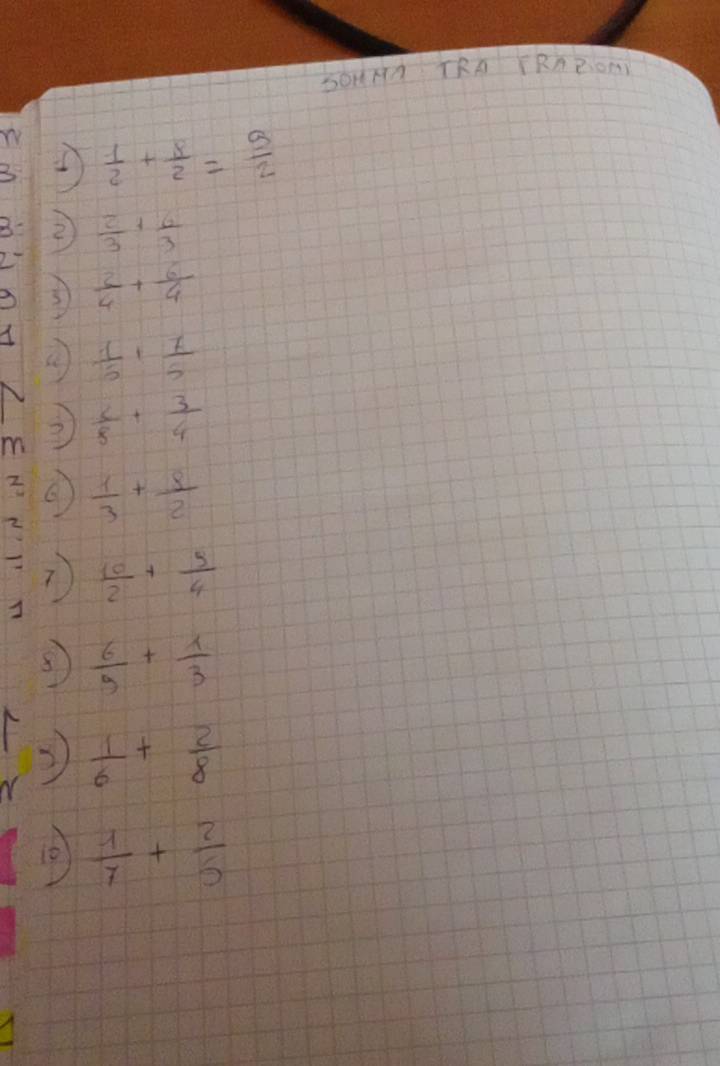 SOMMA TRA FRAZIONI
1) 1/2 + 8/2 = 9/2
2) 2/3 + 6/3
3) 2/4 + 6/4
4) 1/5 + 7/5
5) /8 + 3/4
6) 1/3 + 8/2
7) 10/2 + 5/4
8) 6/9 + 1/3
9) 1/6 + 2/8
10) 1/7 + 2/5